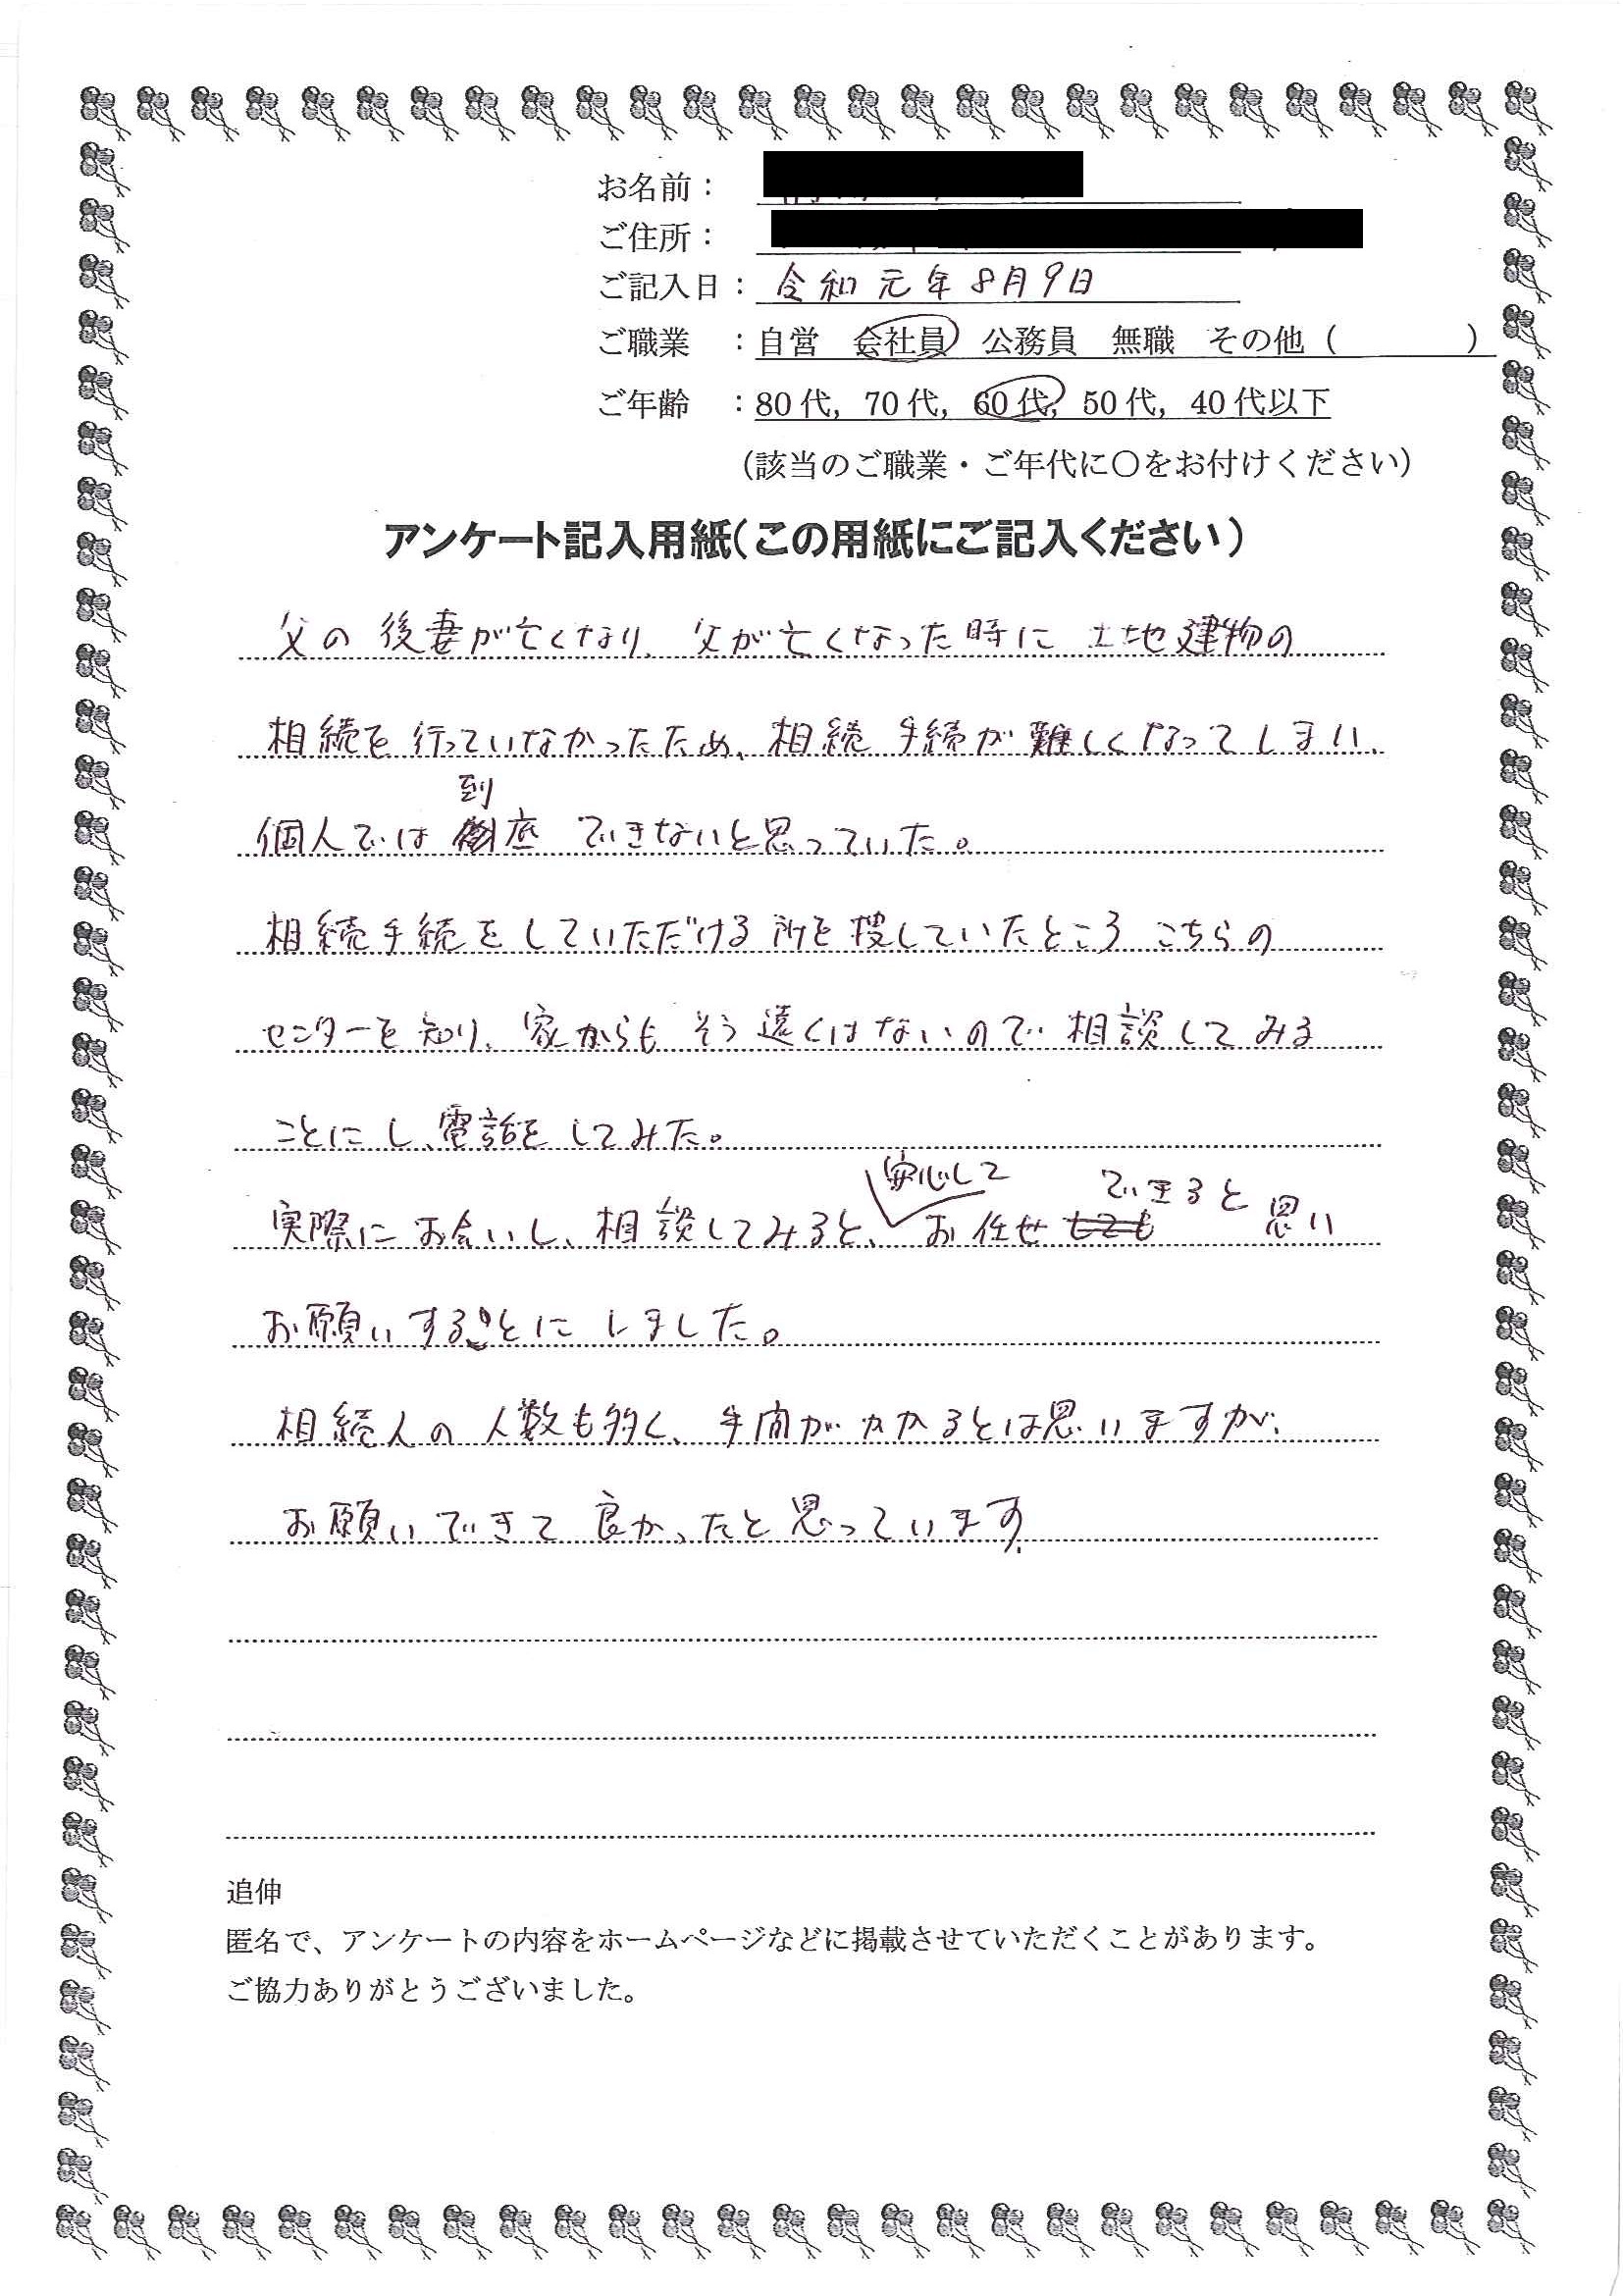 お名前：
ご住所：
ご記入日：令和元年8月9日
ご職業　：自営　会社員　公務員　無職　その他（　　　　）
ご年齢　：80代，70代，60代，50代，40代以下
（該当のご職業・ご年代に○をお付けください）
アンケート記入用紙（この用紙にご記入ください）
父の後妻が亡くなり、父が亡くなった時に土地建物の
相続を行っていなかったため、相続手続が難しくなってしまい、
個人では到底できないと思っていた。
相続手続をしていただける所を捜していたところこちらの
センターを知り、家からもそう遠くはないので相談してみる
ことにし、電話をしてみた。
実際にお会いし、相談してみると、安心してお任せできると思い
お願いすることにしました。
相続人の人数も多く、手間がかかるとは思いますが、
お願いできて良かったと思っています。
追伸
匿名で、アンケートの内容をホームページなどに掲載させていただくことがあります。
ご協力ありがとうございました。